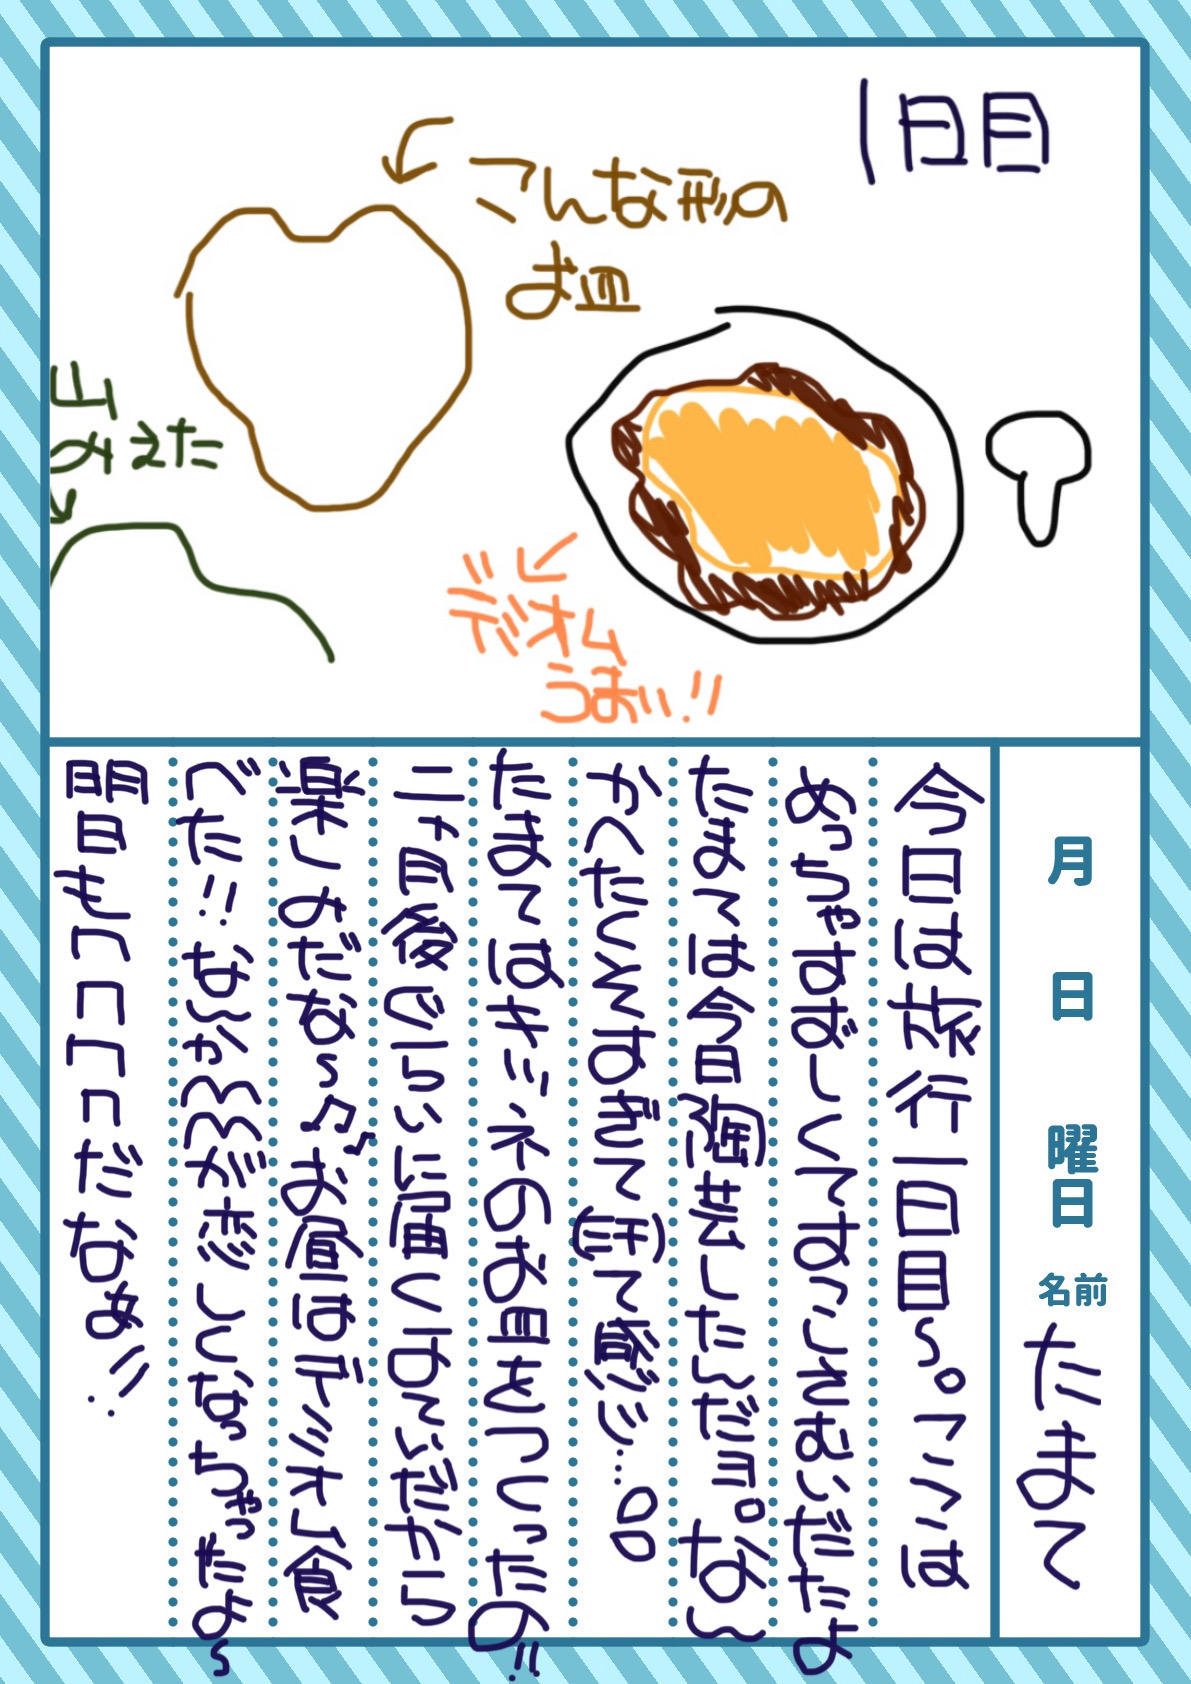 1日目
こんな形の
お皿
山
みえた
デミオム
うまい!!
月 日 曜日 名前 たまて
今日は旅行一日目〜。ここは
めっちゃすずしくてすっ
たまては今日陶芸したんだヨ。な〜
かへたくそすぎて(笑)て感じ…。
たまてはキツネのお皿をつくったの!!
二ヶ月後ぐらいに届くみたいだから
楽しみだな〜♪お昼はデミオム食
べた!!な〜か が恋しくなっちゃたよ〜
明日もワクワクだなぁ!!